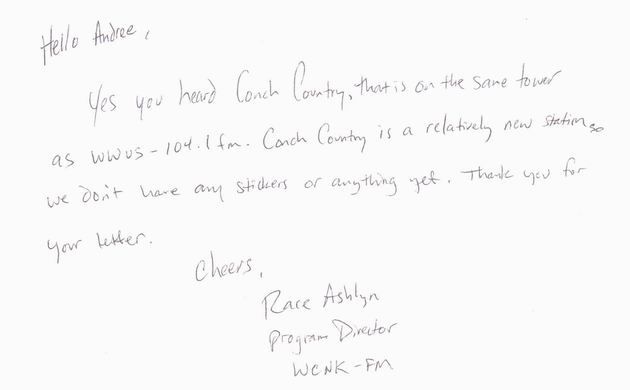 Hello Andree,
Yes you heard Conch Country, that is on the same tower
as WWUS-104.1 fm. Conch Country is a relatively new station so
we don't have any stickers or anything yet. Thank you for
your letter.
Cheers,
Race Ashlyn
Program Director
WCNK-FM